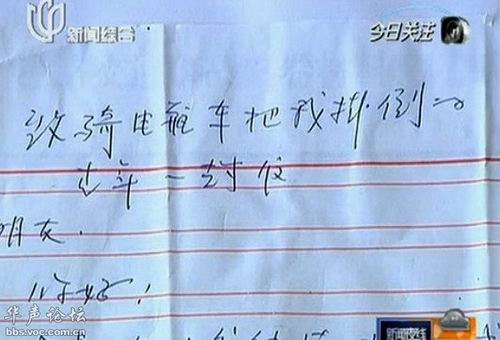 新闻综合
今日关注
致骑电瓶车把我掛倒的
年一封信
朋友.
你好!
华声论坛
bbs.voc.com.cn
新闻